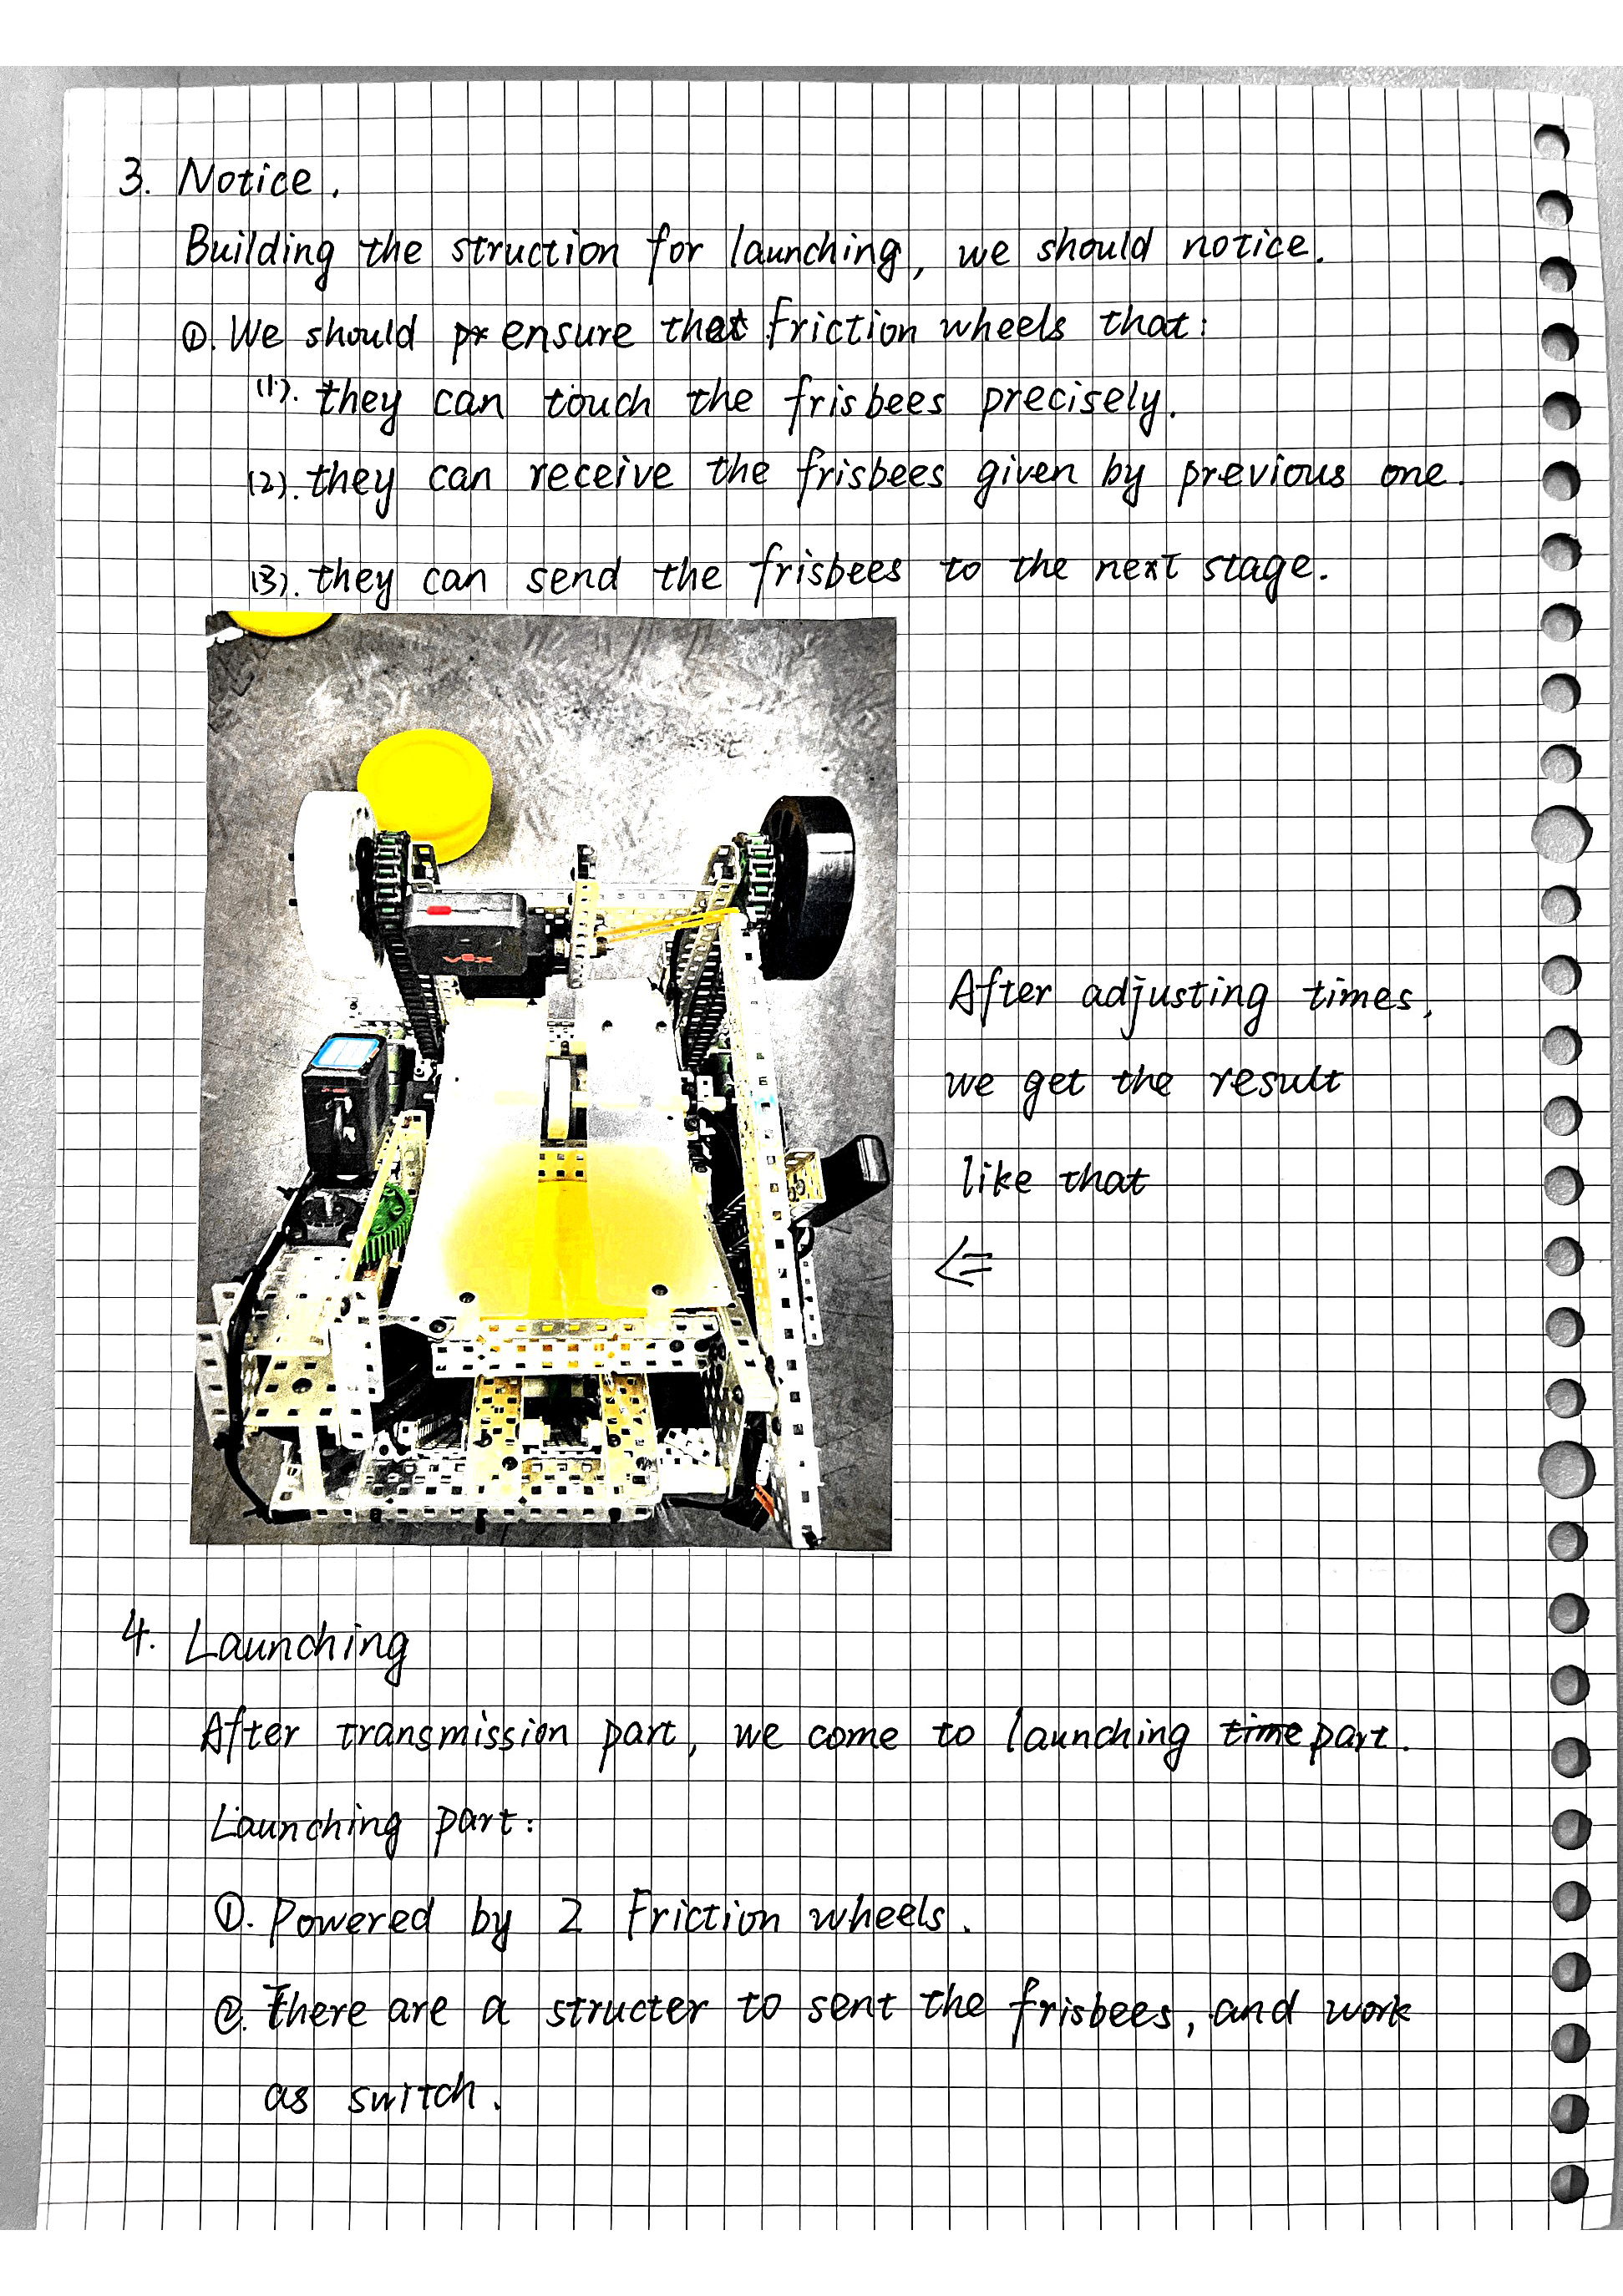 3. Notice.
Building the struction for launching, we should notice.
①. We should ensure that friction wheels that:
(1). they can touch the frisbees precisely.
(2). they can receive the frisbees given by previous one.
(3). they can send the frisbees to the next stage.
vex
After adjusting times,
we get the result
like that
<=
4. Launching
After transmission part, we come to launching time part.
Launching part:
①. Powered by 2 Friction wheels.
②. There are a structer to sent the frisbees, and work
as switch.